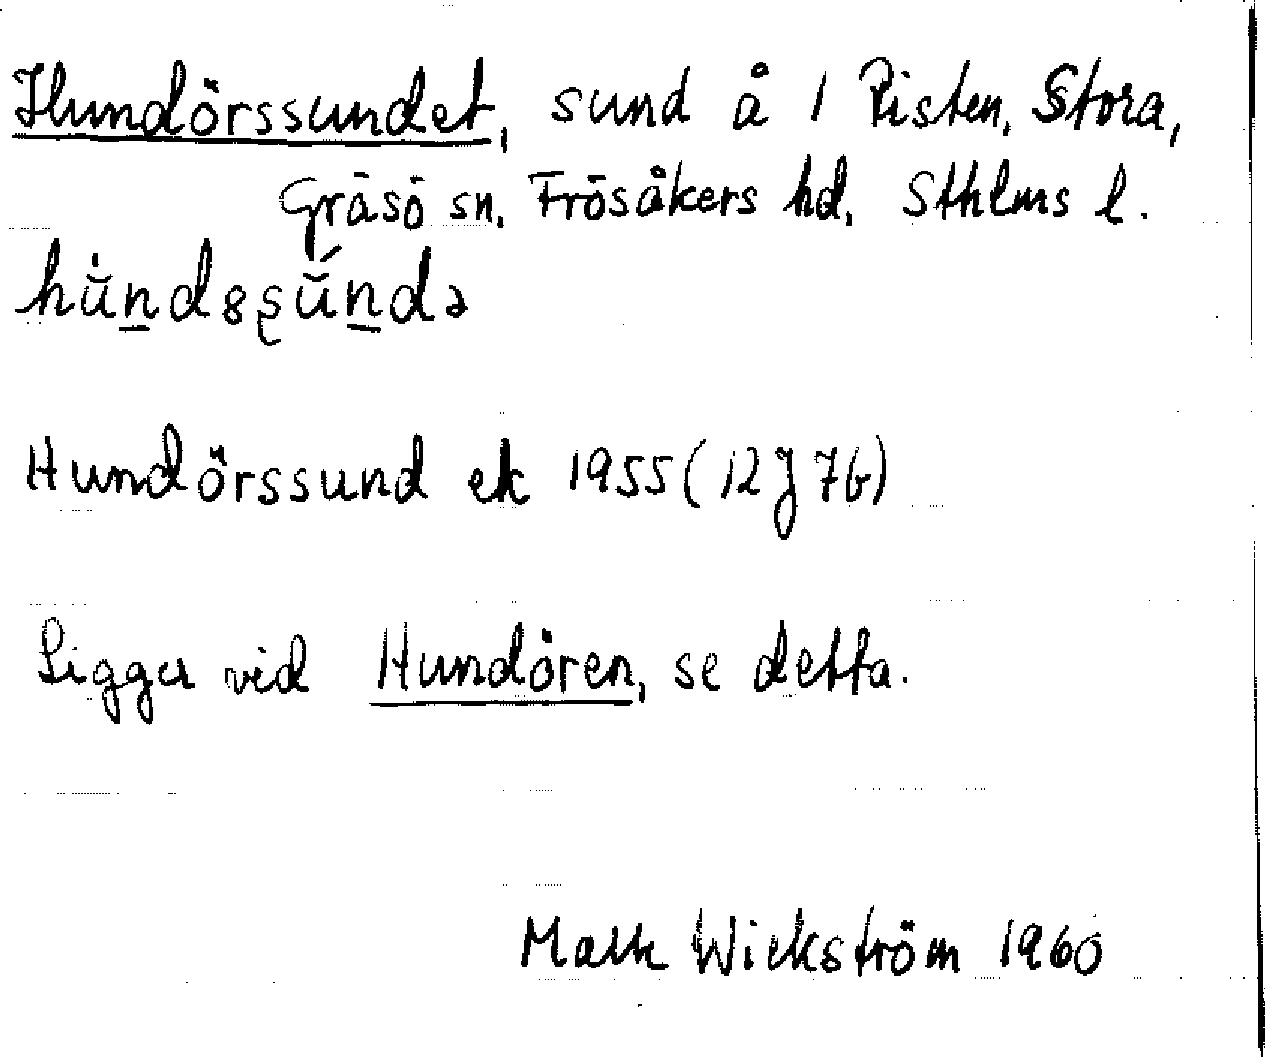 Hundörssundet, sund å 1 Risten, Stora,
Gräsö sn, Frösåkers hd, Sthlms l.
Hundörssund ek 1955 (12J 7b)
Ligger vid Hundören, se detta.
Wickström 1960